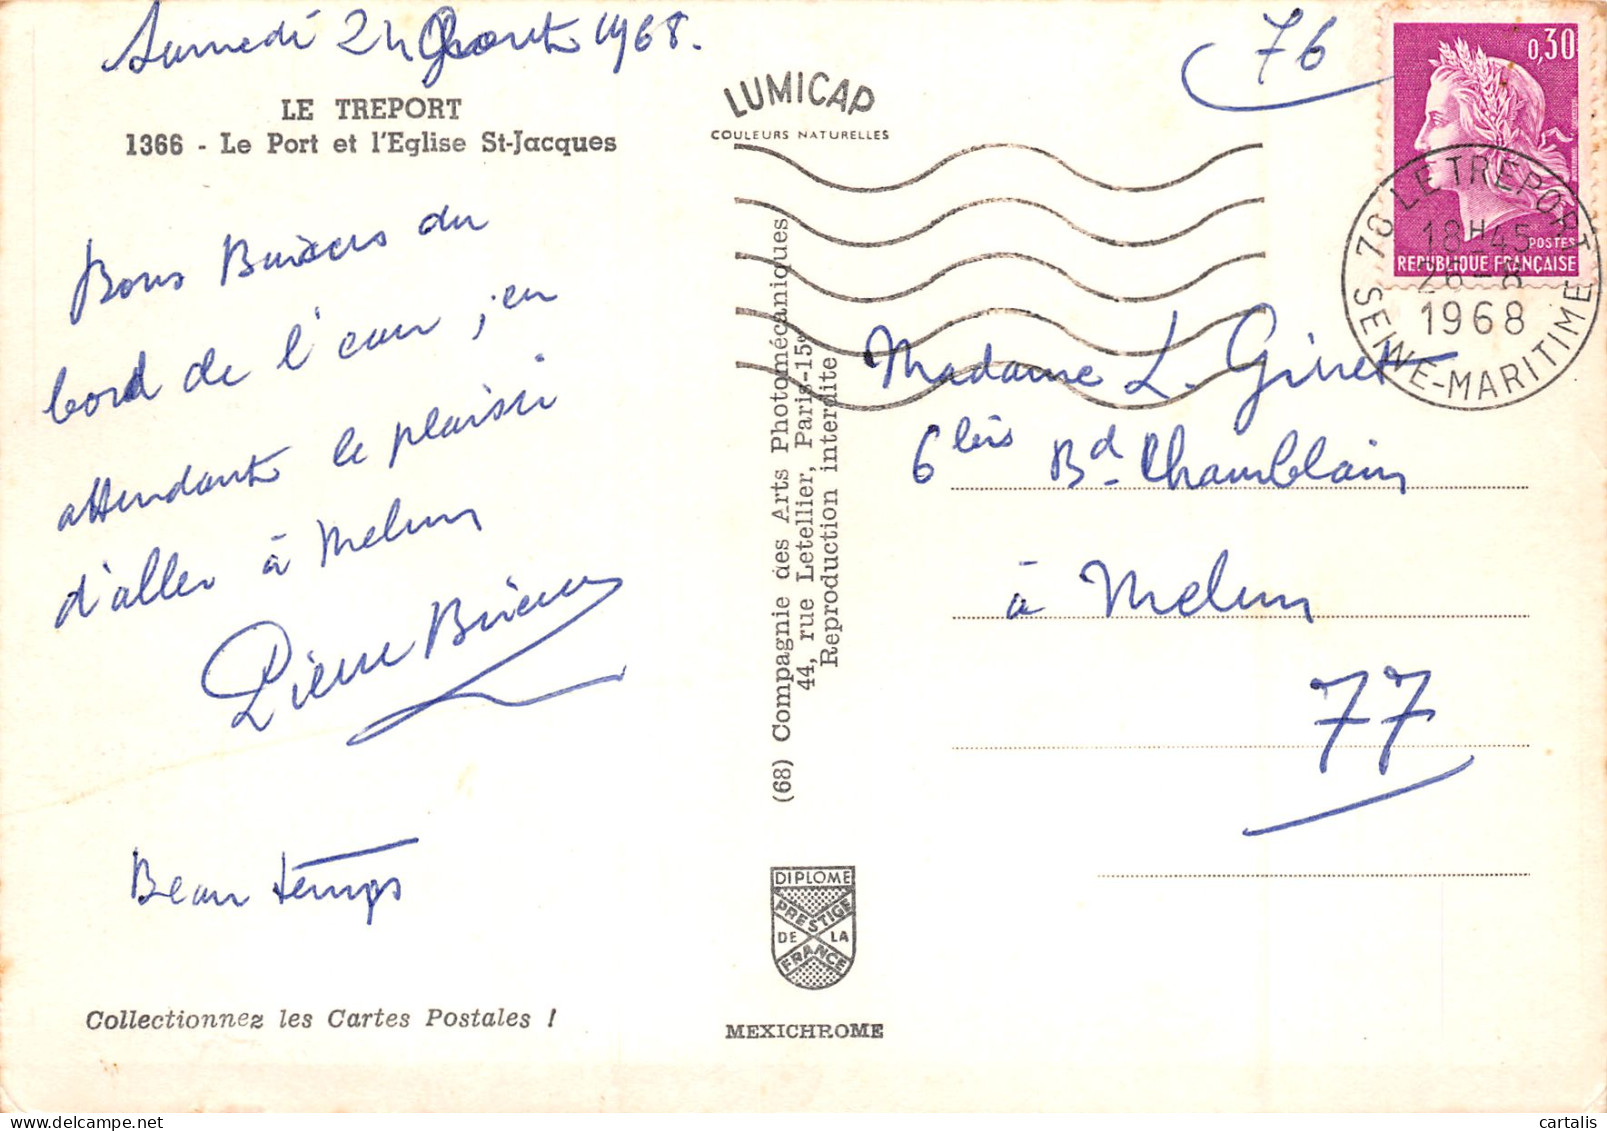 Samedi 24 Aout 1968.
LE TREPORT
1366 - Le Port et l'Eglise St-Jacques
Bons Baisers du
bord de l'eau, en
attendant le plaisir
d'aller à Melun
Pierre
Beau temps
Collectionnez les Cartes Postales !
LUMICAP
COULEURS NATURELLES
(68) Compagnie des Arts Photomécaniques
44, rue Letellier, Paris-15e
Reproduction interdite
DIPLOME
PRESTIGE
DE LA
FRANCE
MEXICHROME
76
0,30
POSTES
REPUBLIQUE FRANÇAISE
76 LE TREPORT
18H45
26-8
1968
SEINE-MARITIME
Madame L. Ginett
6 bis Bd. Chamblain
à Melun
77
cartalis